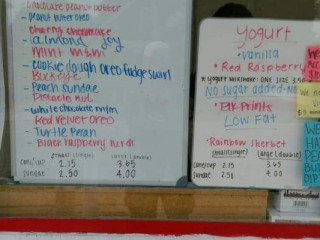 chocolate peanut butter
- peanut butter oreo
cherry cheesecake
- almond joy
mint m&m
- cookie dough oreo fudge swirl
Buckeye
- peach sundae
Pistachio nut
- white chocolate m/m
Red Velvet oreo
- Turtle Pecan
- Black raspberry nerds
(single) (double)
cone/cup 2.15 3.65
sundae 2.50 4.00
Yogurt
- Vanilla
- Red Raspberry
yogurt milkshake: one size
No sugar added-No
- Elk Prints
LOW Fat
- Rainbow sherbet
small (single) large (double)
cone/cup 2.15 3.65
sundae 2.50 4.00